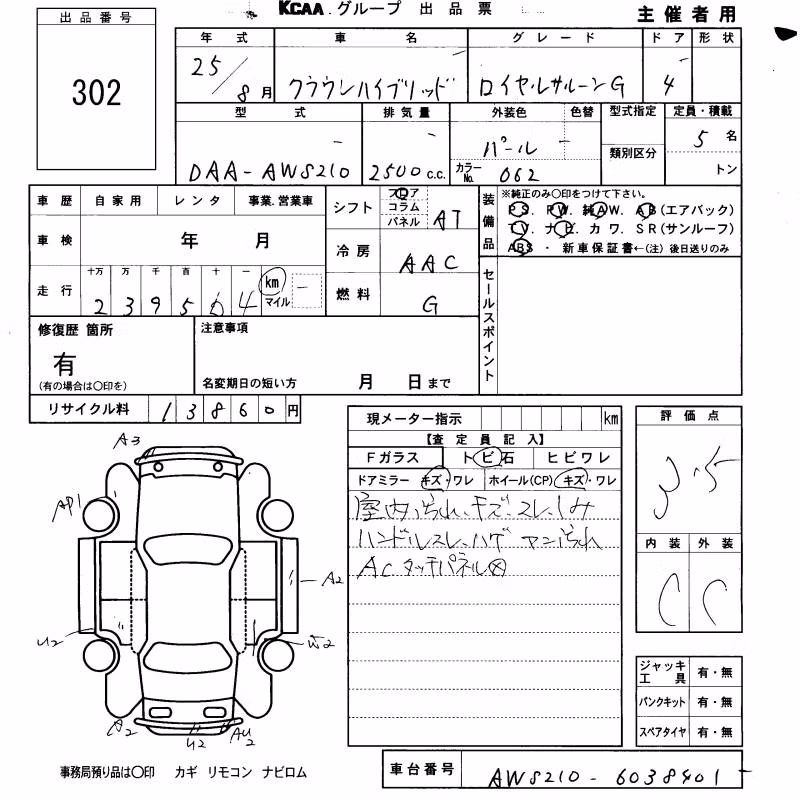 KCAA.グループ 出品票
主催者用
出品番号
302
年式 車名 グレード ドア 形状
25/8月 クラウンハイブリッド ロイヤルサルーンG 4
型式 排気量 外装色 色替 型式指定 定員・積載
DAA-AWS210 2500 c.c. パール 類別区分 5名
カラーNo. 062 トン
車歴 自家用 レンタ 事業.営業車
シフト フロア コラム パネル AT
装備品
※純正のみ〇印をつけて下さい。
PS. PW. 純AW. AB(エアバック)
TV. ナビ. カワ. SR(サンルーフ)
ABS ・ 新車保証書←(注) 後日送りのみ
車検 年 月
冷房 AAC
走行 十万 万 千 百 十 一
239504 km マイル
燃料 G
セールスポイント
修復歴 箇所
有
(有の場合は〇印を)
注意事項
名変期日の短い方 月 日まで
リサイクル料 13860円
現メーター指示 km
【査定員記入】
Fガラス トビ石 ヒビワレ
ドアミラー キズ・ワレ ホイール(CP) キズ・ワレ
室内汚れ、キズ、スレ、シミ
ハンドルスレ、ハゲ マン汚れ
AC タッチパネル
評価点
3.5
内装 外装
C C
A3
AP1
A2
U2
W2
A2
U2
AU2
ジャッキ工具 有・無
パンクキット 有・無
スペアタイヤ 有・無
事務局預り品は〇印 カギ リモコン ナビロム
車台番号 AWS210-6038401